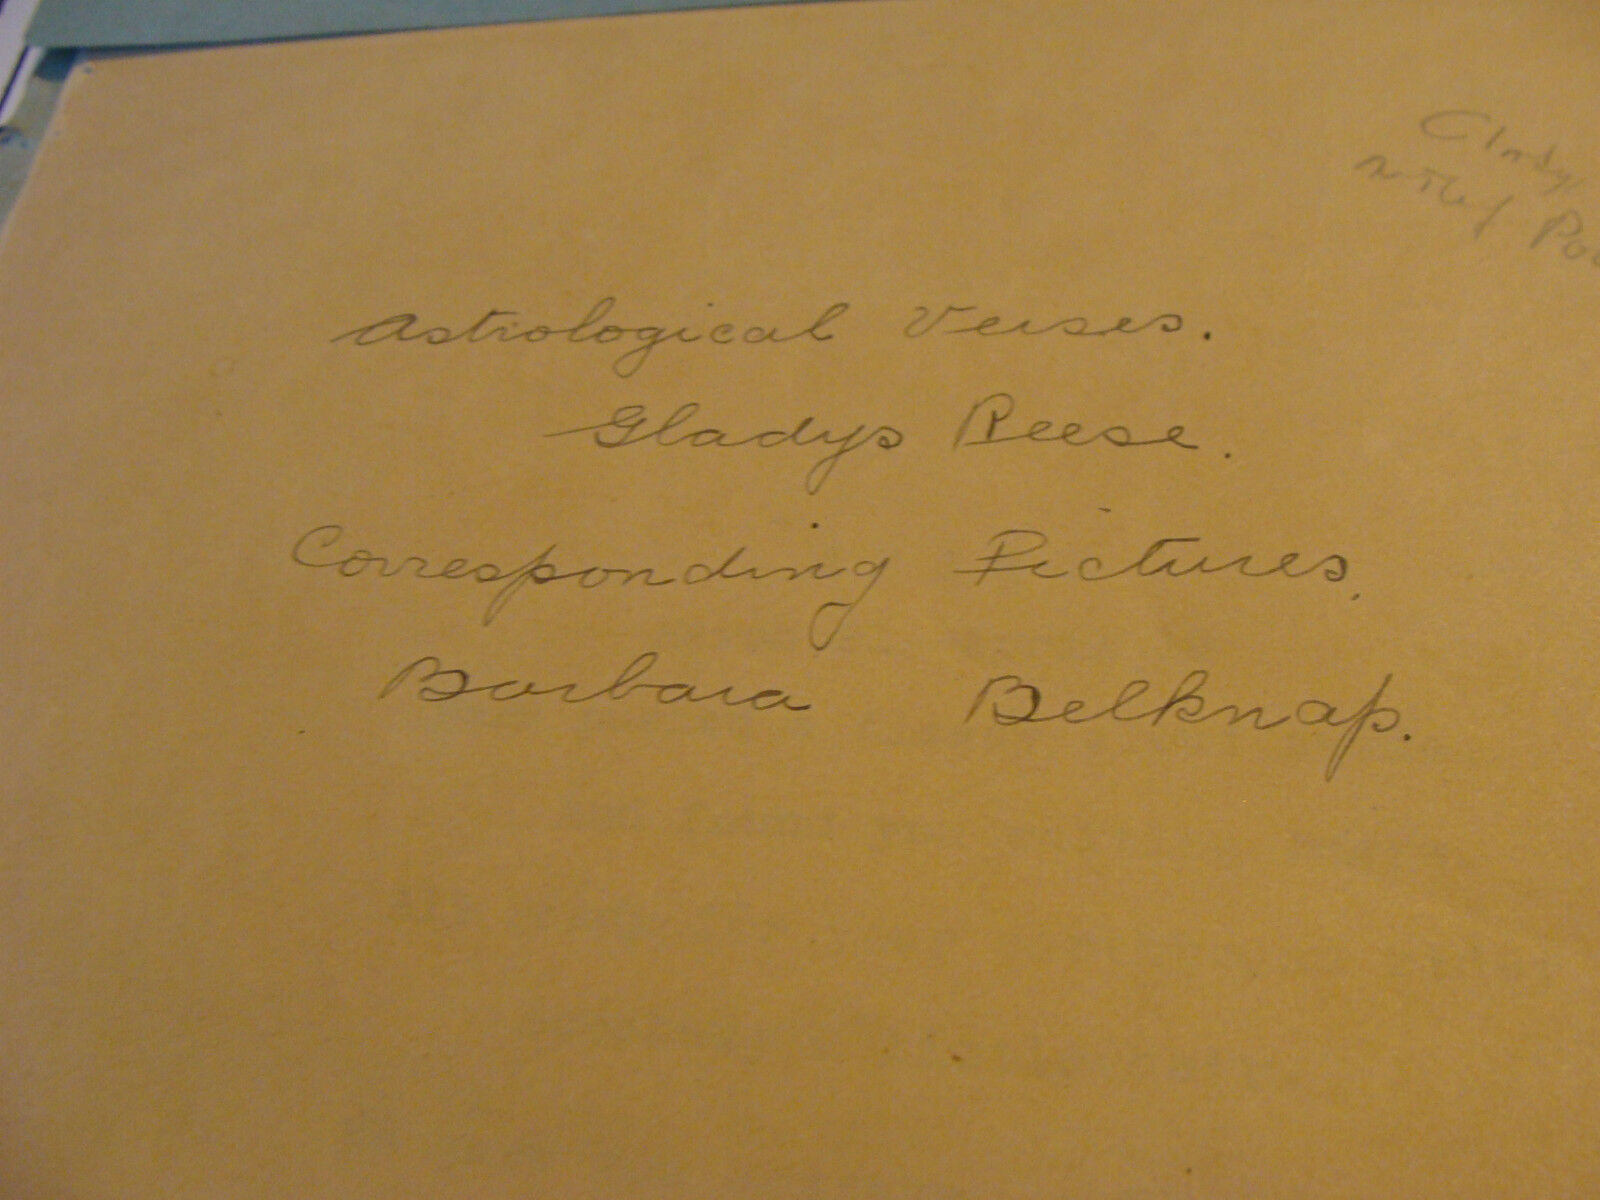 Astrological Verses.
Gladys Reese.
Corresponding Pictures.
Barbara Belknap.